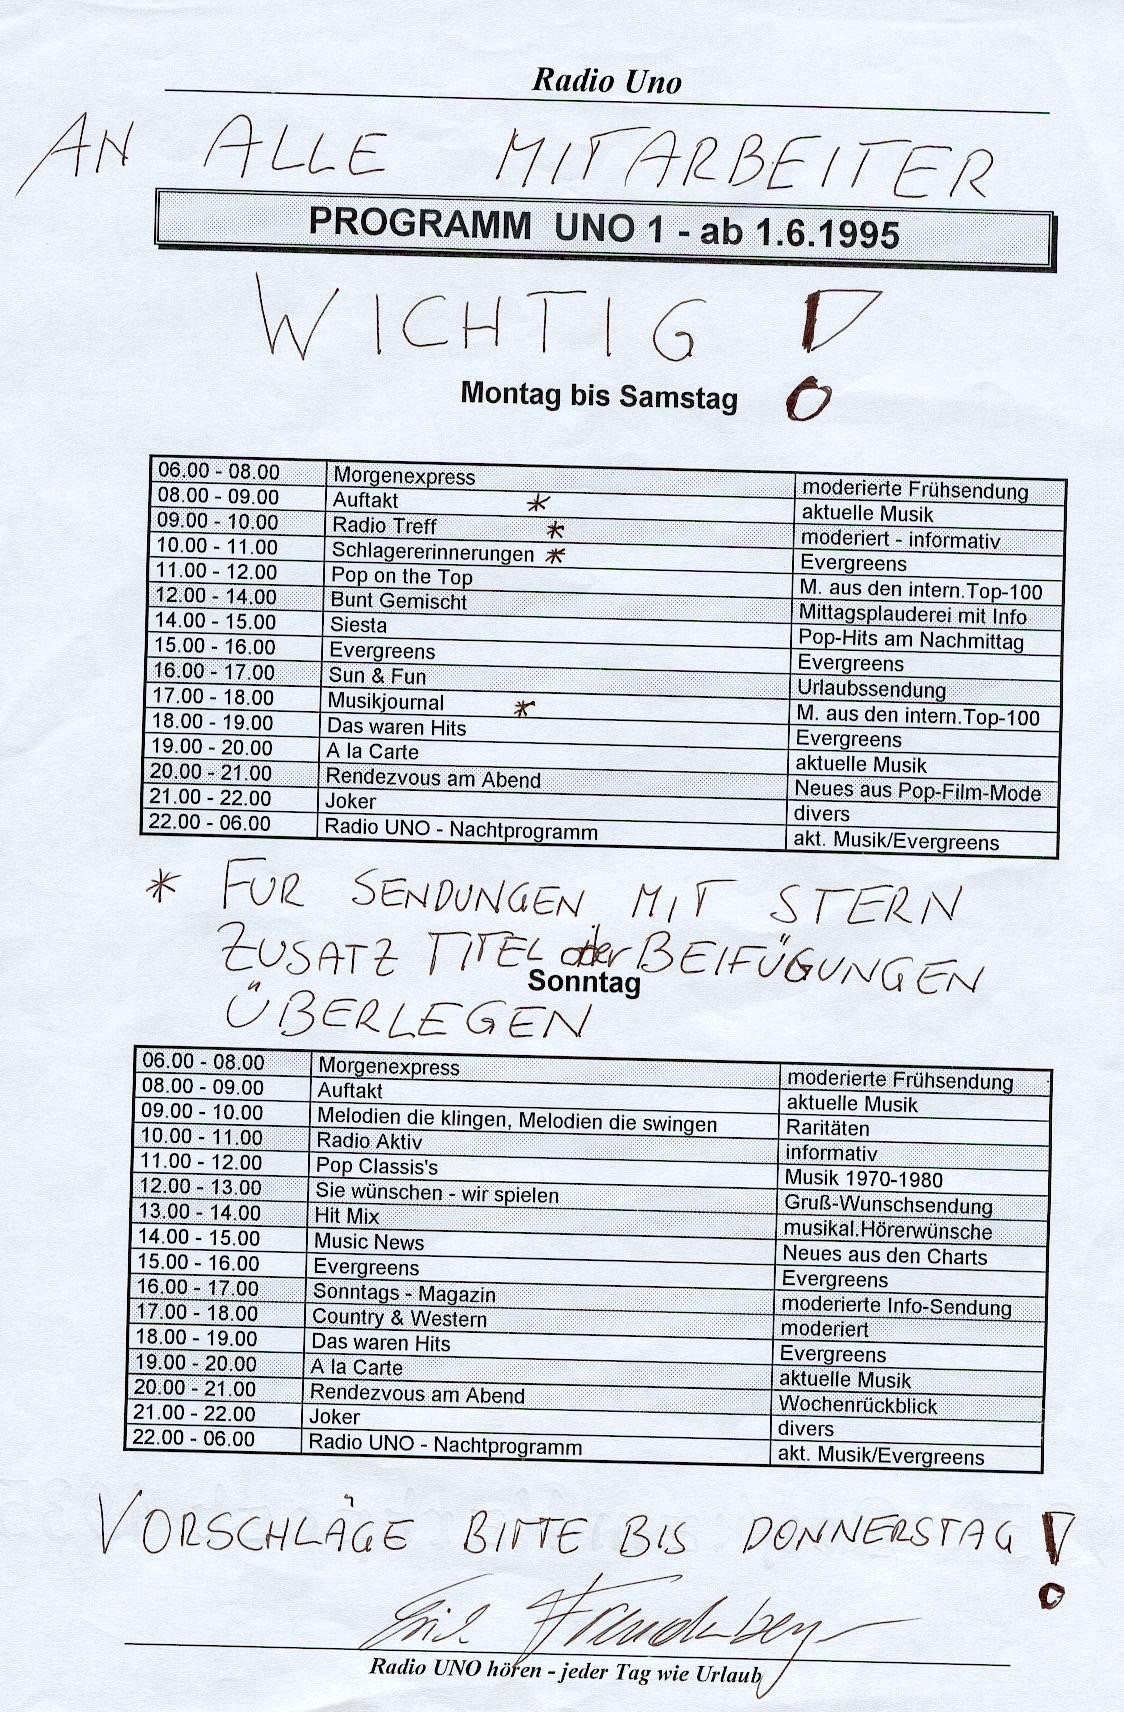 Radio Uno
AN ALLE MITARBEITER
PROGRAMM UNO 1 - ab 1.6.1995
WICHTIG !
Montag bis Samstag
06.00 - 08.00 Morgenexpress moderierte Frühsendung
08.00 - 09.00 Auftakt * aktuelle Musik
09.00 - 10.00 Radio Treff * moderiert - informativ
10.00 - 11.00 Schlagererinnerungen * Evergreens
11.00 - 12.00 Pop on the Top M. aus den intern.Top-100
12.00 - 14.00 Bunt Gemischt Mittagsplauderei mit Info
14.00 - 15.00 Siesta Pop-Hits am Nachmittag
15.00 - 16.00 Evergreens Evergreens
16.00 - 17.00 Sun & Fun Urlaubssendung
17.00 - 18.00 Musikjournal * M. aus den intern.Top-100
18.00 - 19.00 Das waren Hits Evergreens
19.00 - 20.00 A la Carte aktuelle Musik
20.00 - 21.00 Rendezvous am Abend Neues aus Pop-Film-Mode
21.00 - 22.00 Joker divers
22.00 - 06.00 Radio UNO - Nachtprogramm akt. Musik/Evergreens
* FUR SENDUNGEN MIT STERN
ZUSATZ TITEL oder BEIFÜGUNGEN
Sonntag
ÜBERLEGEN
06.00 - 08.00 Morgenexpress moderierte Frühsendung
08.00 - 09.00 Auftakt aktuelle Musik
09.00 - 10.00 Melodien die klingen, Melodien die swingen Raritäten
10.00 - 11.00 Radio Aktiv informativ
11.00 - 12.00 Pop Classis's Musik 1970-1980
12.00 - 13.00 Sie wünschen - wir spielen Gruß-Wunschsendung
13.00 - 14.00 Hit Mix musikal.Hörerwünsche
14.00 - 15.00 Music News Neues aus den Charts
15.00 - 16.00 Evergreens Evergreens
16.00 - 17.00 Sonntags - Magazin moderierte Info-Sendung
17.00 - 18.00 Country & Western moderiert
18.00 - 19.00 Das waren Hits Evergreens
19.00 - 20.00 A la Carte aktuelle Musik
20.00 - 21.00 Rendezvous am Abend Wochenrückblick
21.00 - 22.00 Joker divers
22.00 - 06.00 Radio UNO - Nachtprogramm akt. Musik/Evergreens
VORSCHLÄGE BITTE BIS DONNERSTAG !
Radio UNO hören - jeder Tag wie Urlaub